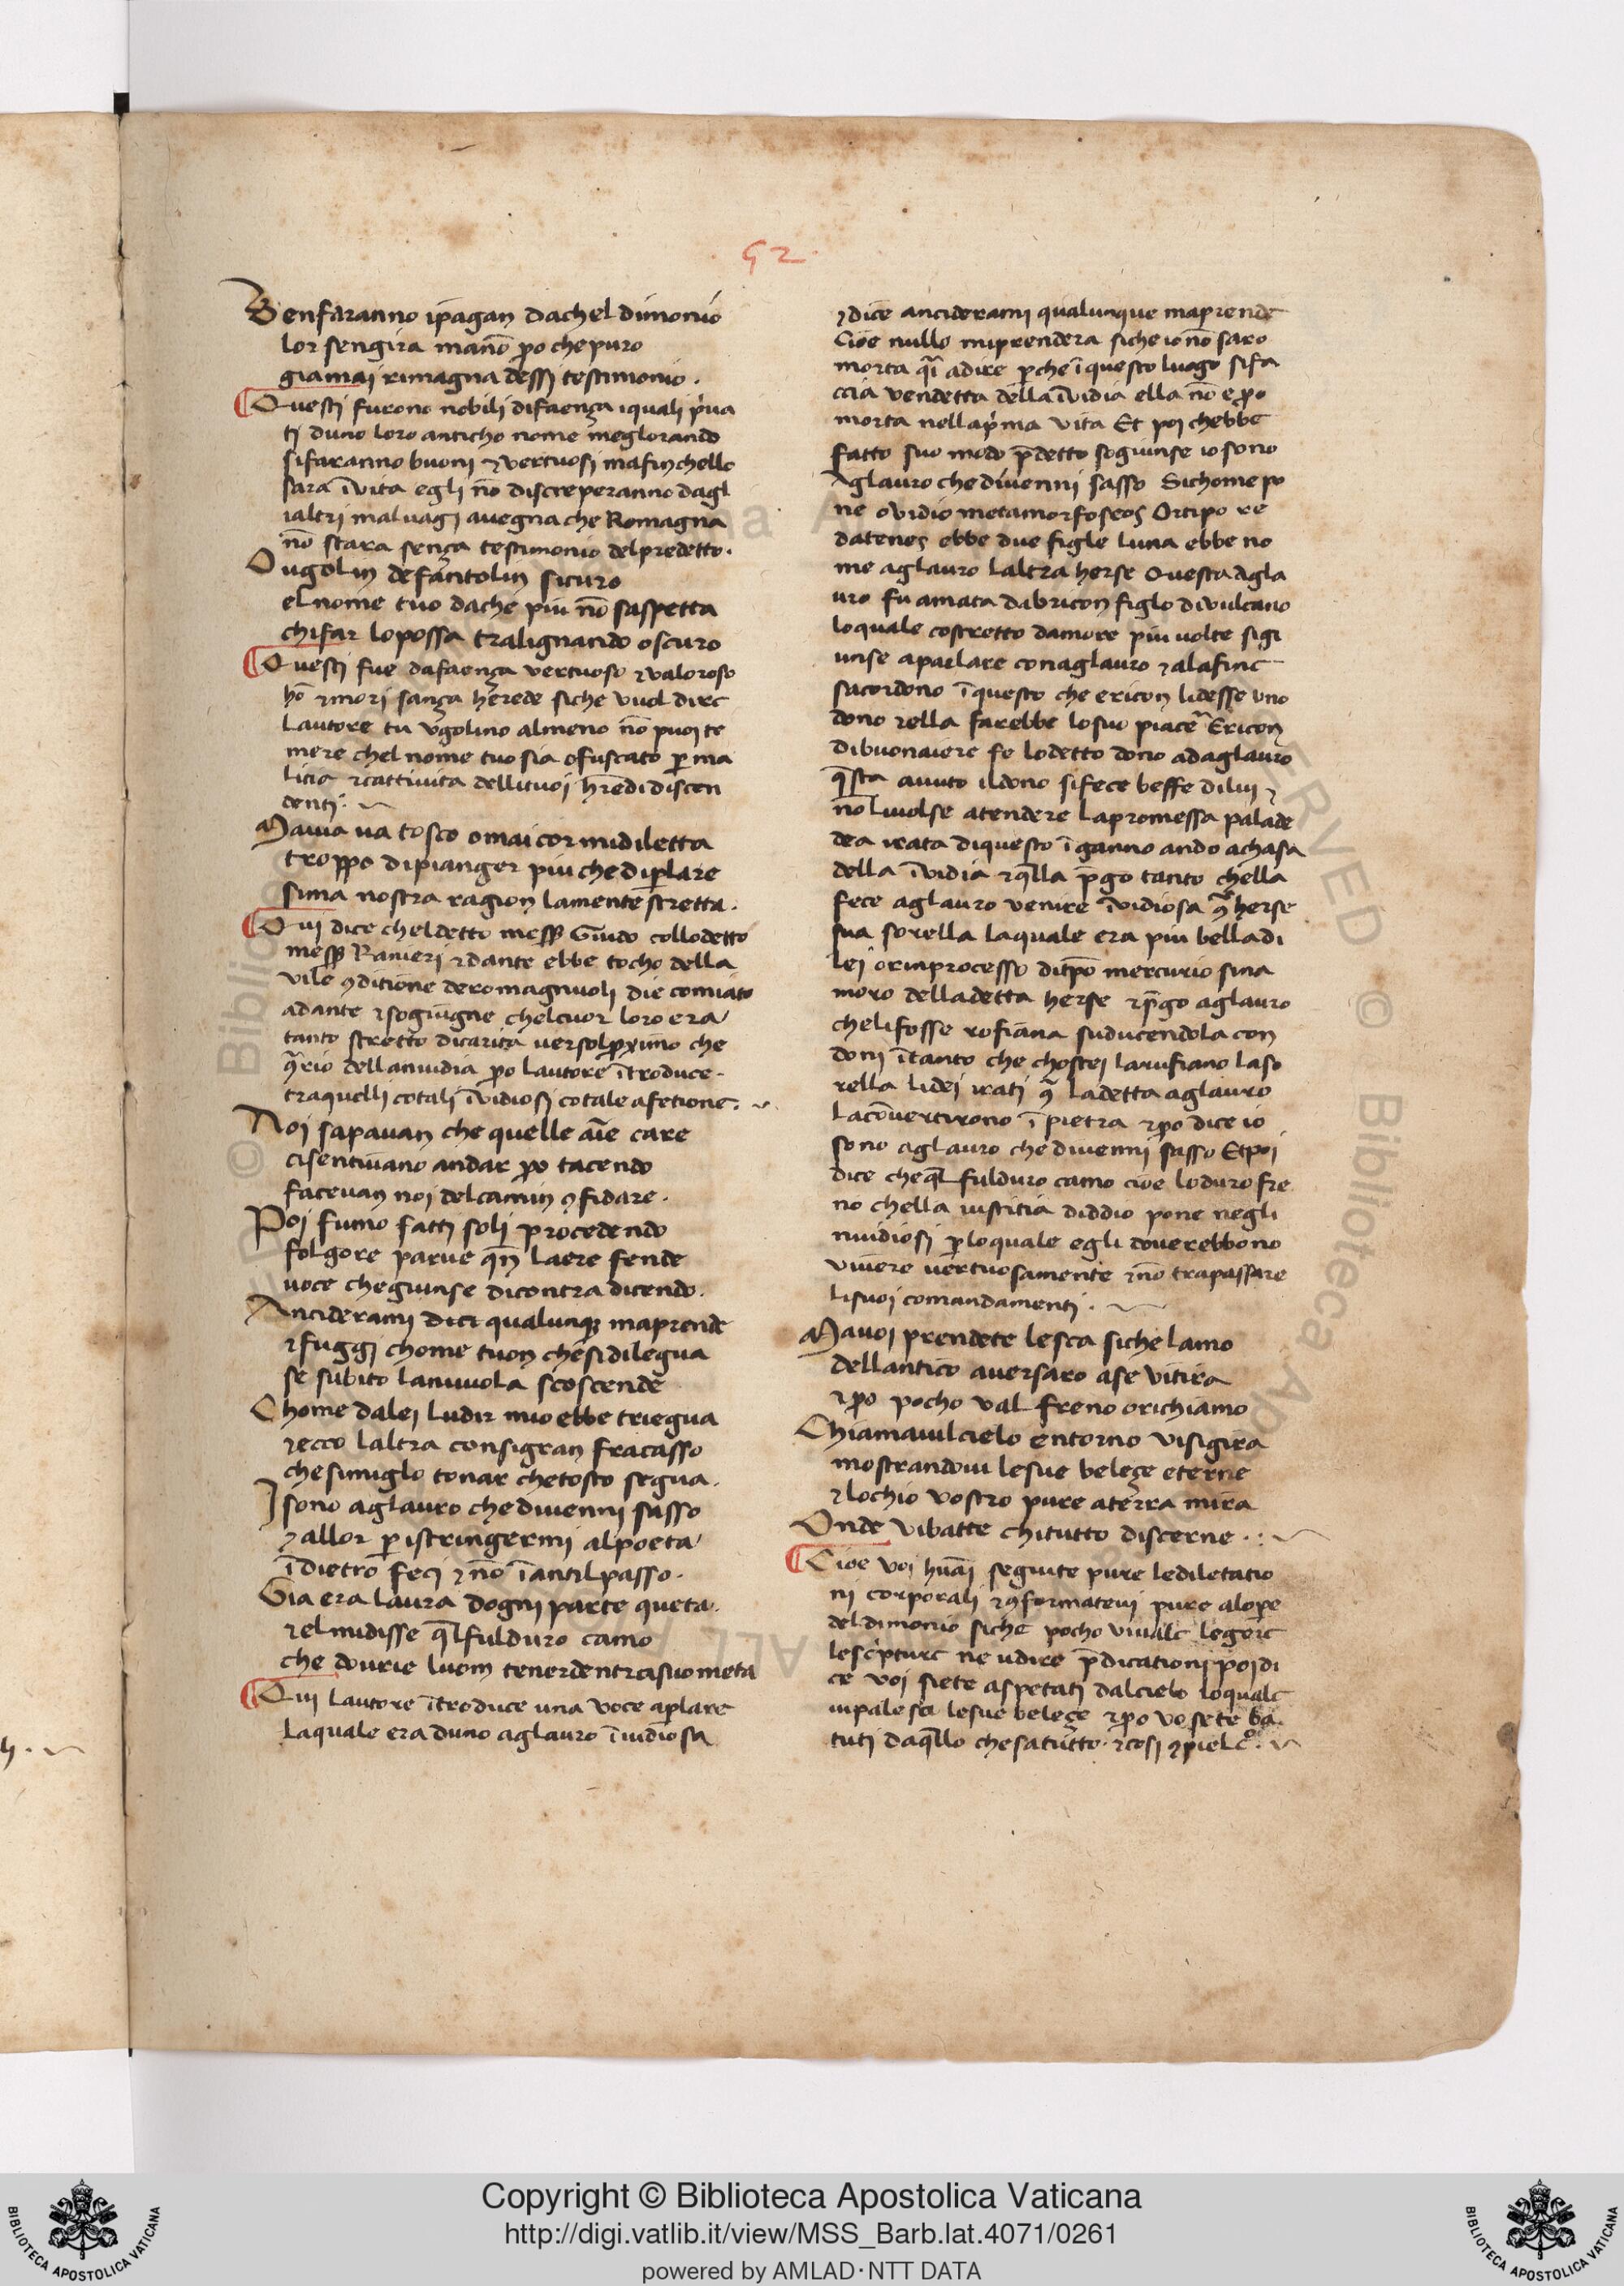 52
Benfaranno ipagan dachel dimonio
lor sengira manō ꝑo che puro
giamai rimagna dessi testimonio.
Questi furono nobili difaenza iquali p̄ua
ti duno loro anticho nome meglorando
sifaranno buoni ⁊ vertuosi mafinchello
sara ī vita egli nō discreperanno dagl
ialtri maluagi auegna che Romagna
nō stara senza testimonio delpredetto.
O ugolin defantolin sicuro
el nome tuo dache piu nō saspetta
chifar lopossa tralignando oscuro
Questi fue dafaenza vertuoso ⁊ valoroso
hō ⁊ mori sanza herede siche vuol dire
lautore tu vgolino almeno nō puoi te
mere chel nome tuo sia ofuscato ꝑ ma
litia ⁊ cattiuita dellituoi h̄redi discen
denti.
Maiua ua tosco omai cor midiletta
troppo dipianger piu che diꝑlare
sima nostra ragion lamente stretta.
Qui dice cheldetto mess̄ Guido collodetto
mess̄ Ranieri ⁊ dante ebbe tocho della
vile ꝯditione deromagniuoli die comiato
adante ⁊ sogiugne chelcuor loro era
tanto stretto dicarita uersolꝓximo che
ꝯ̄rio dellanuidia ꝑo lautore ītroduce
traquelli cotali īuidiosi cotale afetione.
Noi sapauan che quelle aīe care
cisentiuano andar ꝑo tacendo
faceuan noi delcamin ꝯfidare.
Poi fumo fatti soli procedendo
folgore parue qn̄ laere fende
uoce che giunse dicontra dicendo.
Anciderami dici qualunqꝫ maprende
⁊ fuggi chome tuon che sidilegua
se subito lanuuola scoscende
Chome dalei ludir nuo ebbe triegua
⁊ ecco laltra consigran fracasso
che simiglo tonar chetosto segua.
I sono aglauro che diuenni sasso
⁊ allor ꝑ istringermi alpoeta
īdietro feci ⁊ nō īantilpasso.
Gia era laura dogni parte queta.
⁊ el midisse q̄lfulduro camo
che dourie luom tenerdentrasuometa
Qui lautore ītroduce una voce aꝑlare
laquale era duno aglauro īuidiosa
⁊ dice anciderami qualunque maprende
Cioe nullo miprendera siche io nō saro
morta q̄i adire ꝑche ī questo luogo sifa
ccia vendetta della īuidia ella nō e ꝑo
morta nella p̄ma vita Et poi chebbe
fatto suo modo p̄detto sogiunse io sono
Aglauro che diuenni sasso Sichome po
ne ouidio metamorfoseos Ortipo re
datenes ebbe due figle luna ebbe no
me aglauro laltra herse Questa Agla
uro fu amata dabricon figlo diuulcano
loquale costretto damore piu uolte sigi
unse apaelare conaglauro ⁊ alafine
sacordono ī questo che ericon lidesse uno
dono ⁊ ella farebbe losuo piacer Ericon
dibuonaiere fe lodetto dono adaglauro
q̄sta auuto ildono sifece beffe dilui ⁊
nō luolse atendere lapromessa palade
dea irata diquesto īganno ando achasa
della īuidia ⁊ q̄lla p̄go tanto chella
fece aglauro venire īuidiosa ꝯ̄ herse
sua sorella laquale era piu belladi
lei orinprocesso ditp̄o mercurio sina
moro delladetta herse ⁊ p̄go aglauro
chelifosse rofiana suducendola con
doni ītanto che chostei larufiano laso
rella lidei irati ꝯ̄ ladetta aglauro
laconuertirono ī pietra ⁊ ꝑo dice io
sono aglauro che diuenni sasso Et poi
dice cheq̄l fulduro camo cioe loduro fre
no chella iustitia diddio pone negli
nuidiosi ꝑloquale egli douerebbono
viuere uertuosamente ⁊ nō trapassare
lisuoi comandamenti.
Mauoi prendete lesca siche lamo
dellantico auersaro ase vitira
⁊ ꝑo pocho val freno orichiamo
Chiamauilcielo entorno visigira
mostrandoui lesue beleze eterne
⁊ lochio vostro pure aterra mira
Onde vibatte chitutto discerne.
Cioe voi huāi seguite pure lediletatio
ni corporali ⁊ ꝯformateui pure aloꝑe
deldimonio siche pocho viuale legere
lesc̄pture ne udire p̄dicationi poi di
ce voi siete aspetati dalcielo loquale
uipalesa lesue beleze ⁊ ꝑo vo sete ba
tuti daq̄llo chesatutto. ⁊ cosi ꝯpiel cº.
Copyright © Biblioteca Apostolica Vaticana
http://digi.vatlib.it/view/MSS_Barb.lat.4071/0261
powered by AMLAD·NTT DATA
BIBLIOTECA APOSTOLICA VATICANA
BIBLIOTECA APOSTOLICA VATICANA